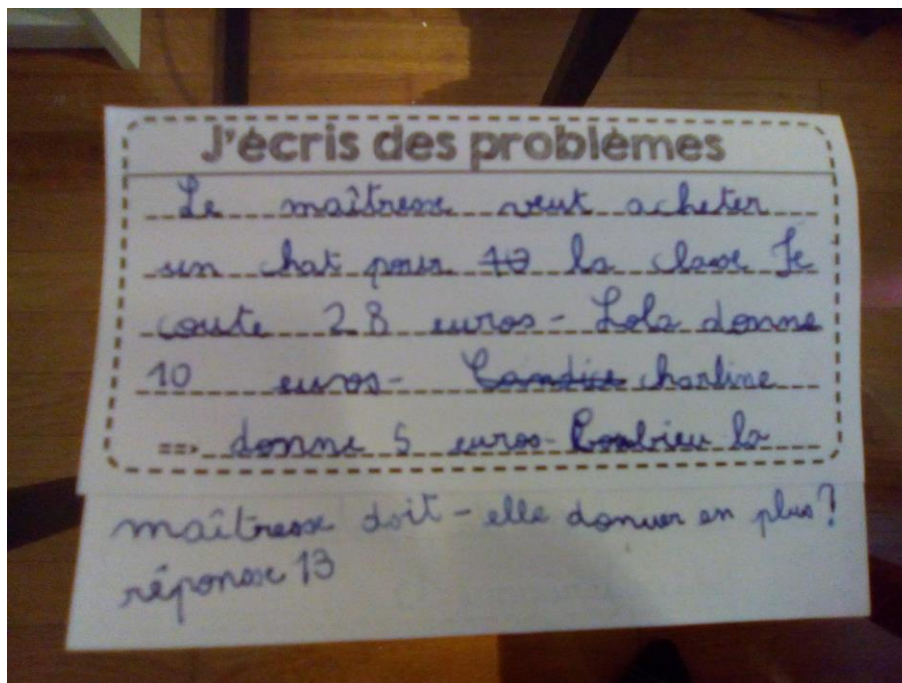 J'écris des problèmes
Le maîtresse veut acheter
un chat pour la classe Je
coute 28 euros - Lola donne
10 euros - charline
==> donne 5 euros - Combieu la
maîtresse doit - elle donner en plus?
réponse 13